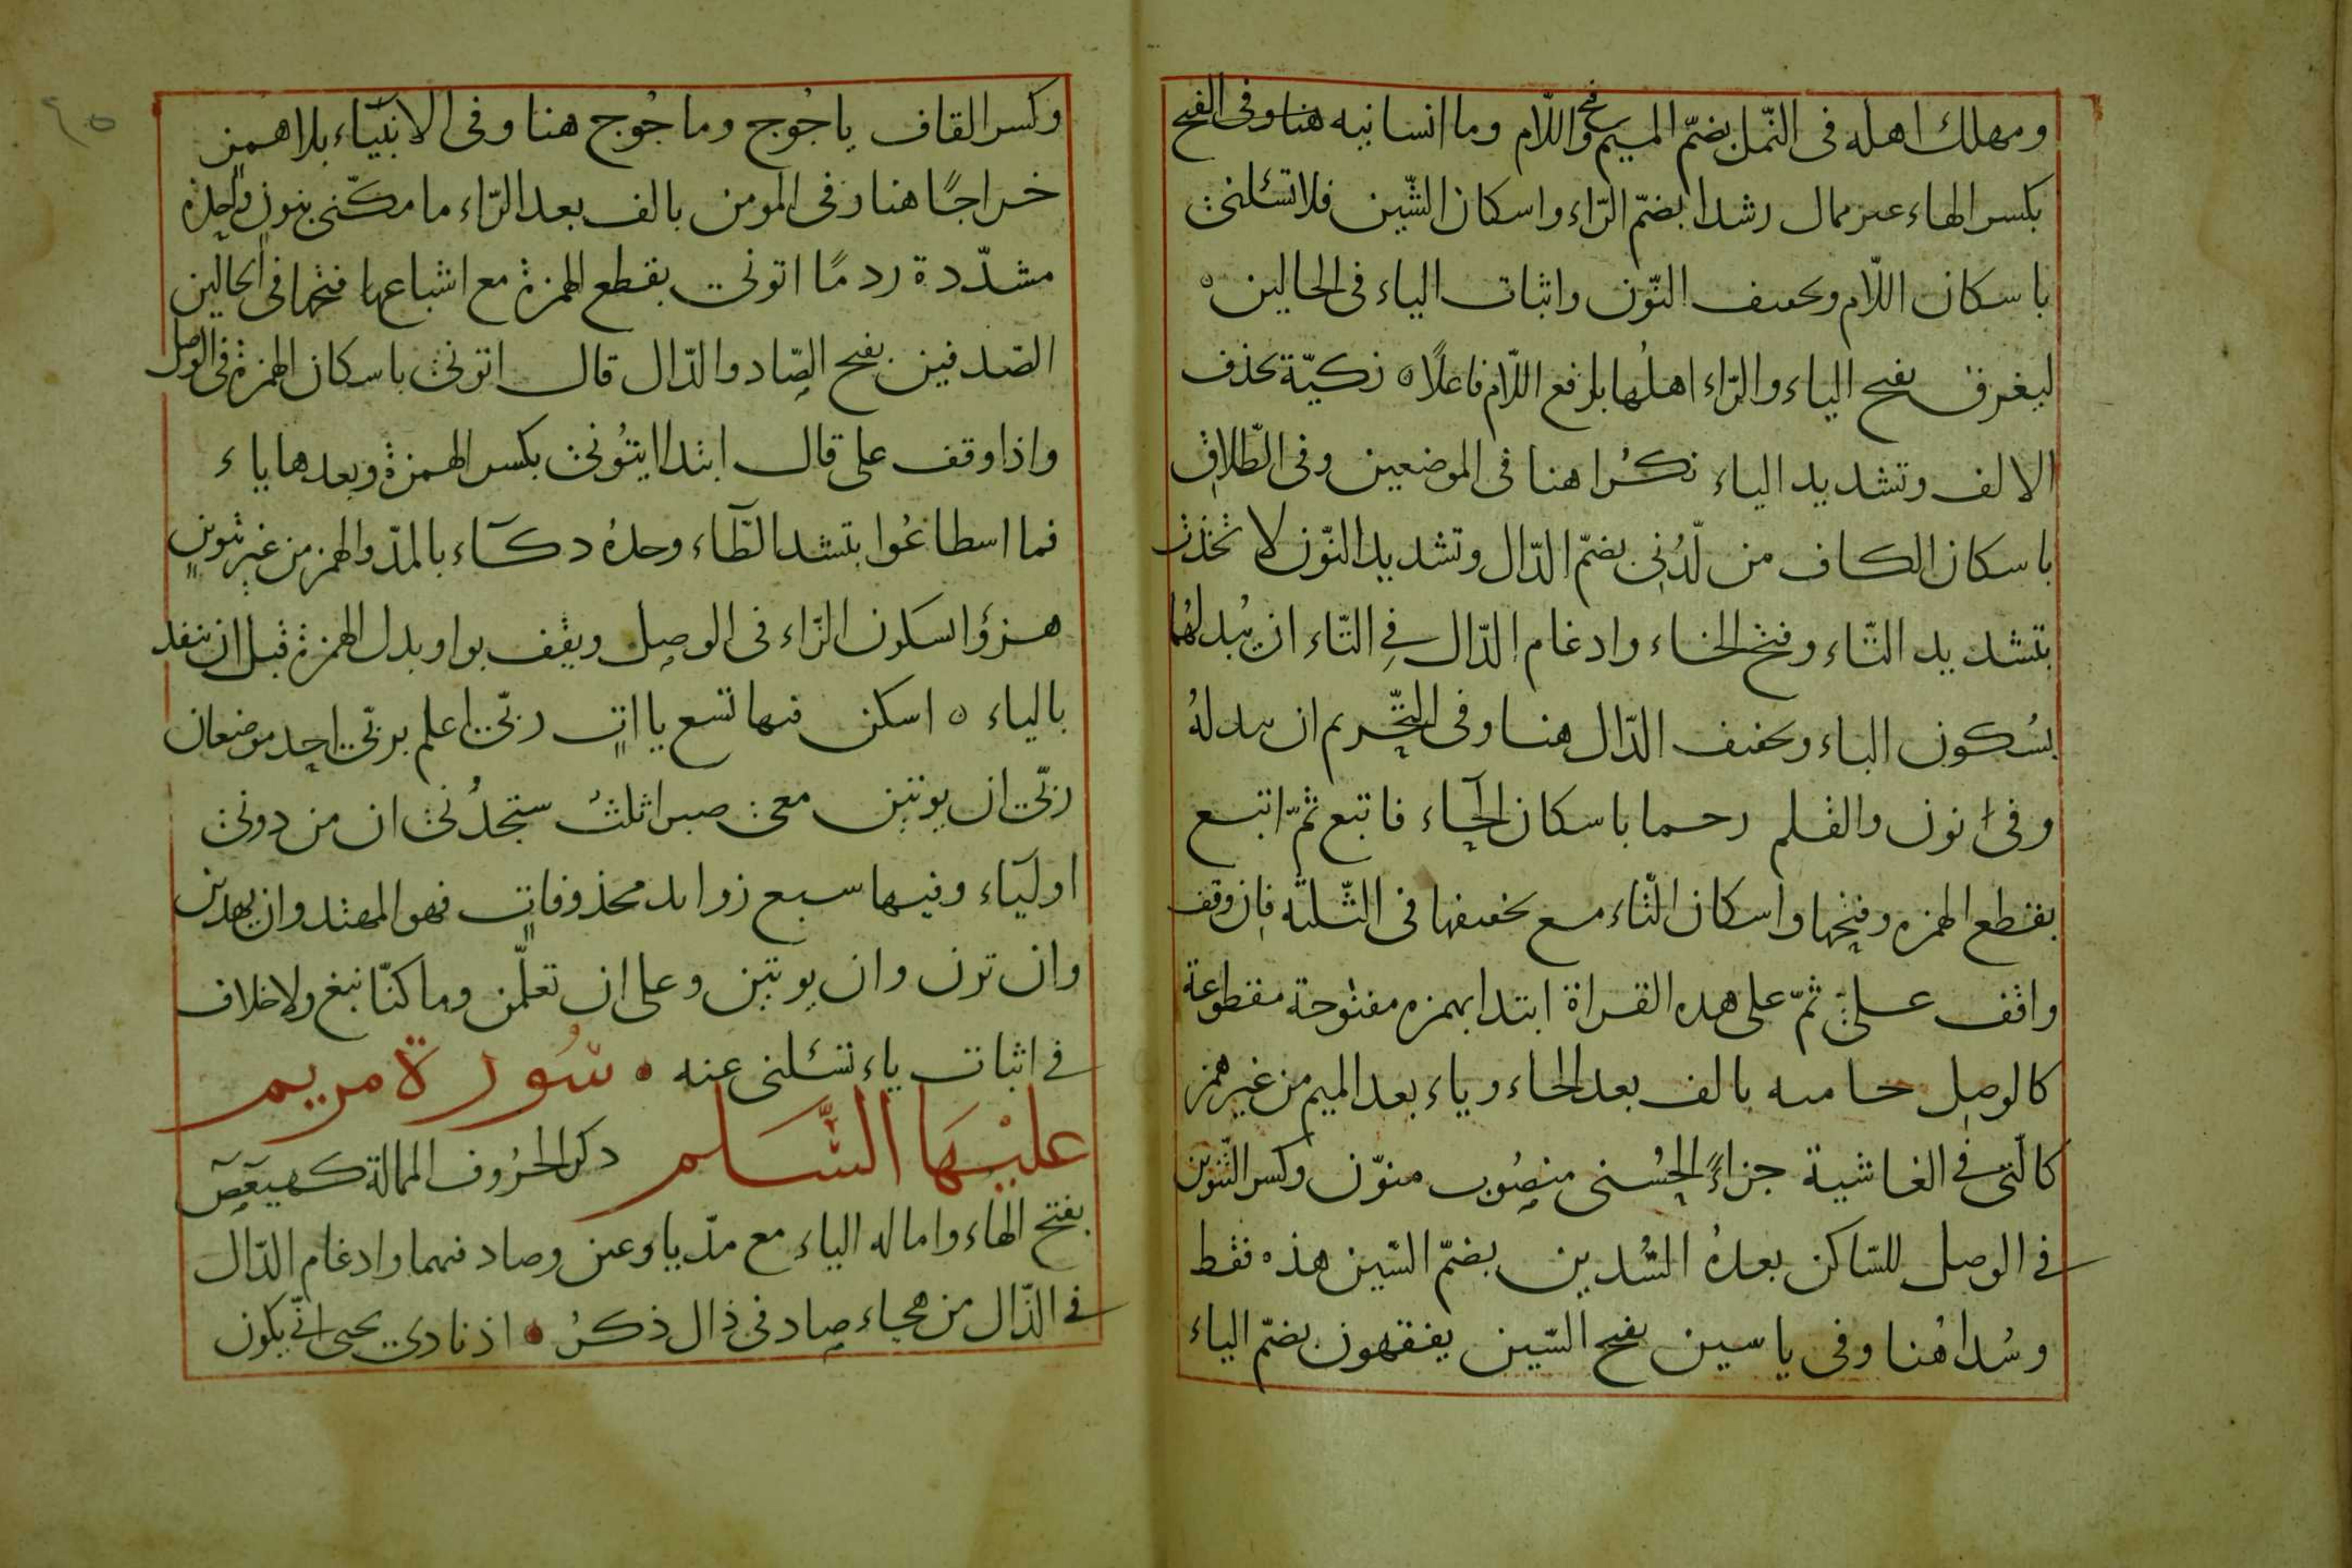 ومهلك اهله فى النّمل بضمّ الميم وفتح واللّام وما انسانيه هنا وفى الفتح
بكسر الهاء عىر ممال رشدا بضمّ الرّاء واسكان الشّين فلا تسئلنى
باسكان اللّام وتحفىف النّون واثبات الياء فى الحالين ه
ليغرق بفتح الياء والرّاء اهلُها برفع اللّام فاعلًا ه زكيّة بحذف
الالف وتشديد الياء نكُرا هنا فى الموضعين وفى الطّلاق
باسكان الكاف من لّدُنى بضمّ الدّال وتشديد النّون لا تّخذت
بتشديد التّاء وفتح الخاء وادغام الذّال فى التّاء ان يُبدلهُما
بسُكون الباء وتخفىف الدّال هنا وفى التّحريم ان ىبدلهُ
وفى ن نون والقلم رحما باسكان الحاء فاتبع ثمّ اتبع
بقطع الهمزه وفتحها واسكان التّاء مع تخفىفها فى الثّلثة فان وقف
واقف علىٰ ثمّ على هده القراة ابتدا بهمزه مفتوحة مقطوعة
كالوصل حامىه بالف بعد الحاء وياء بعد الميم من غير همز
كالّتى فى الغاشية جزاءً الحُسنى منصُوب منوّن وكسر التّنوين
فى الوصل للسّاكن بعدهُ السُّدين بضمّ السّين هذه فقط
وسُدا هُنا وفى ياسين بفتح السّين يفقهون بضمّ الياء
وكسر القاف ياجُوج وماجُوج هنا وفى الانبيَاء بلا همزٍ
خراجًا هنا وفى المومن بالف بعد الرّاء ما مكّنى بنونٍ واحدة
مشدّدة ردمًا اتونى بقطع الهمزة مع اشباعها فتحها فى الحالين
الصّدفين بفتح الصّاد والدّال قال اتونى باسكان الهمزة فى الوصل
واذا وقف على قال ابتدا ايتُونى بكسر الهمزة وبعدها ياء
فما اسطاعُوا بتشد الطّاء وحدهُ دكّاء بالمدّ والهمز من غير تنوينٍ
هزؤا سكون الزّاء فى الوصل ويقف بواو بدل الهمزة قبل ان ينفد
بالياء ه اسكن فىها تسع يااتٍ ربّى اعلم بربّى احد موضعان
ربّى ان يوتين معى صبرا ثلثٌ ستجدُنى ان من دونى
اوليَاء وفيها سبع زواىد محذوفاتٍ فهو المهتد وان يهدين
وان ترن وان يوتين وعلى ان تعلّمن وما كنّا نبغ ولا خلاف
فى اثبات ياء تسئلنى عنه • سُورة مريم
عليْهَا السَّلم ذكر الحرُوف الممالة كهيٓعٓصٓ
بفتح الهاء واماله الياء مع مدّ يا وعىن وصاد فىهما وادغام الدّال
فى الذّال من هجاء صاد فى ذال ذكرُ • اذ نادى يحيى انّى يكون